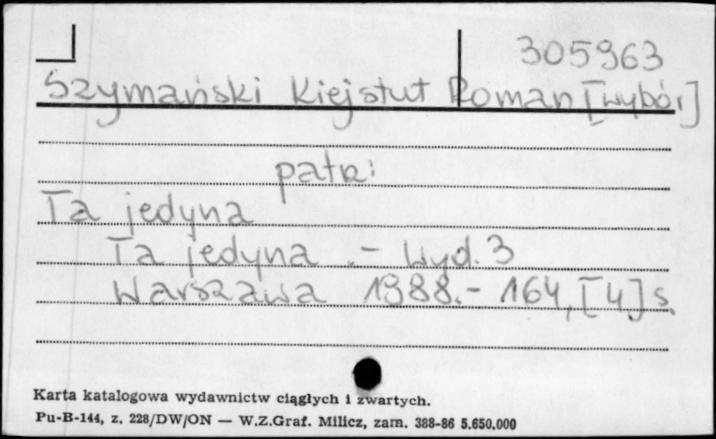 305963
Szymański Kiejstut Roman [wybór]
patrz:
Ta jedyna
Ta jedyna .- Wyd. 3
Warszawa 1988.- 164, [4] s.
Karta katalogowa wydawnictw ciągłych i zwartych.
Pu-B-144, z. 228/DW/ON — W.Z.Graf. Milicz, zam. 388-86 5.650.000